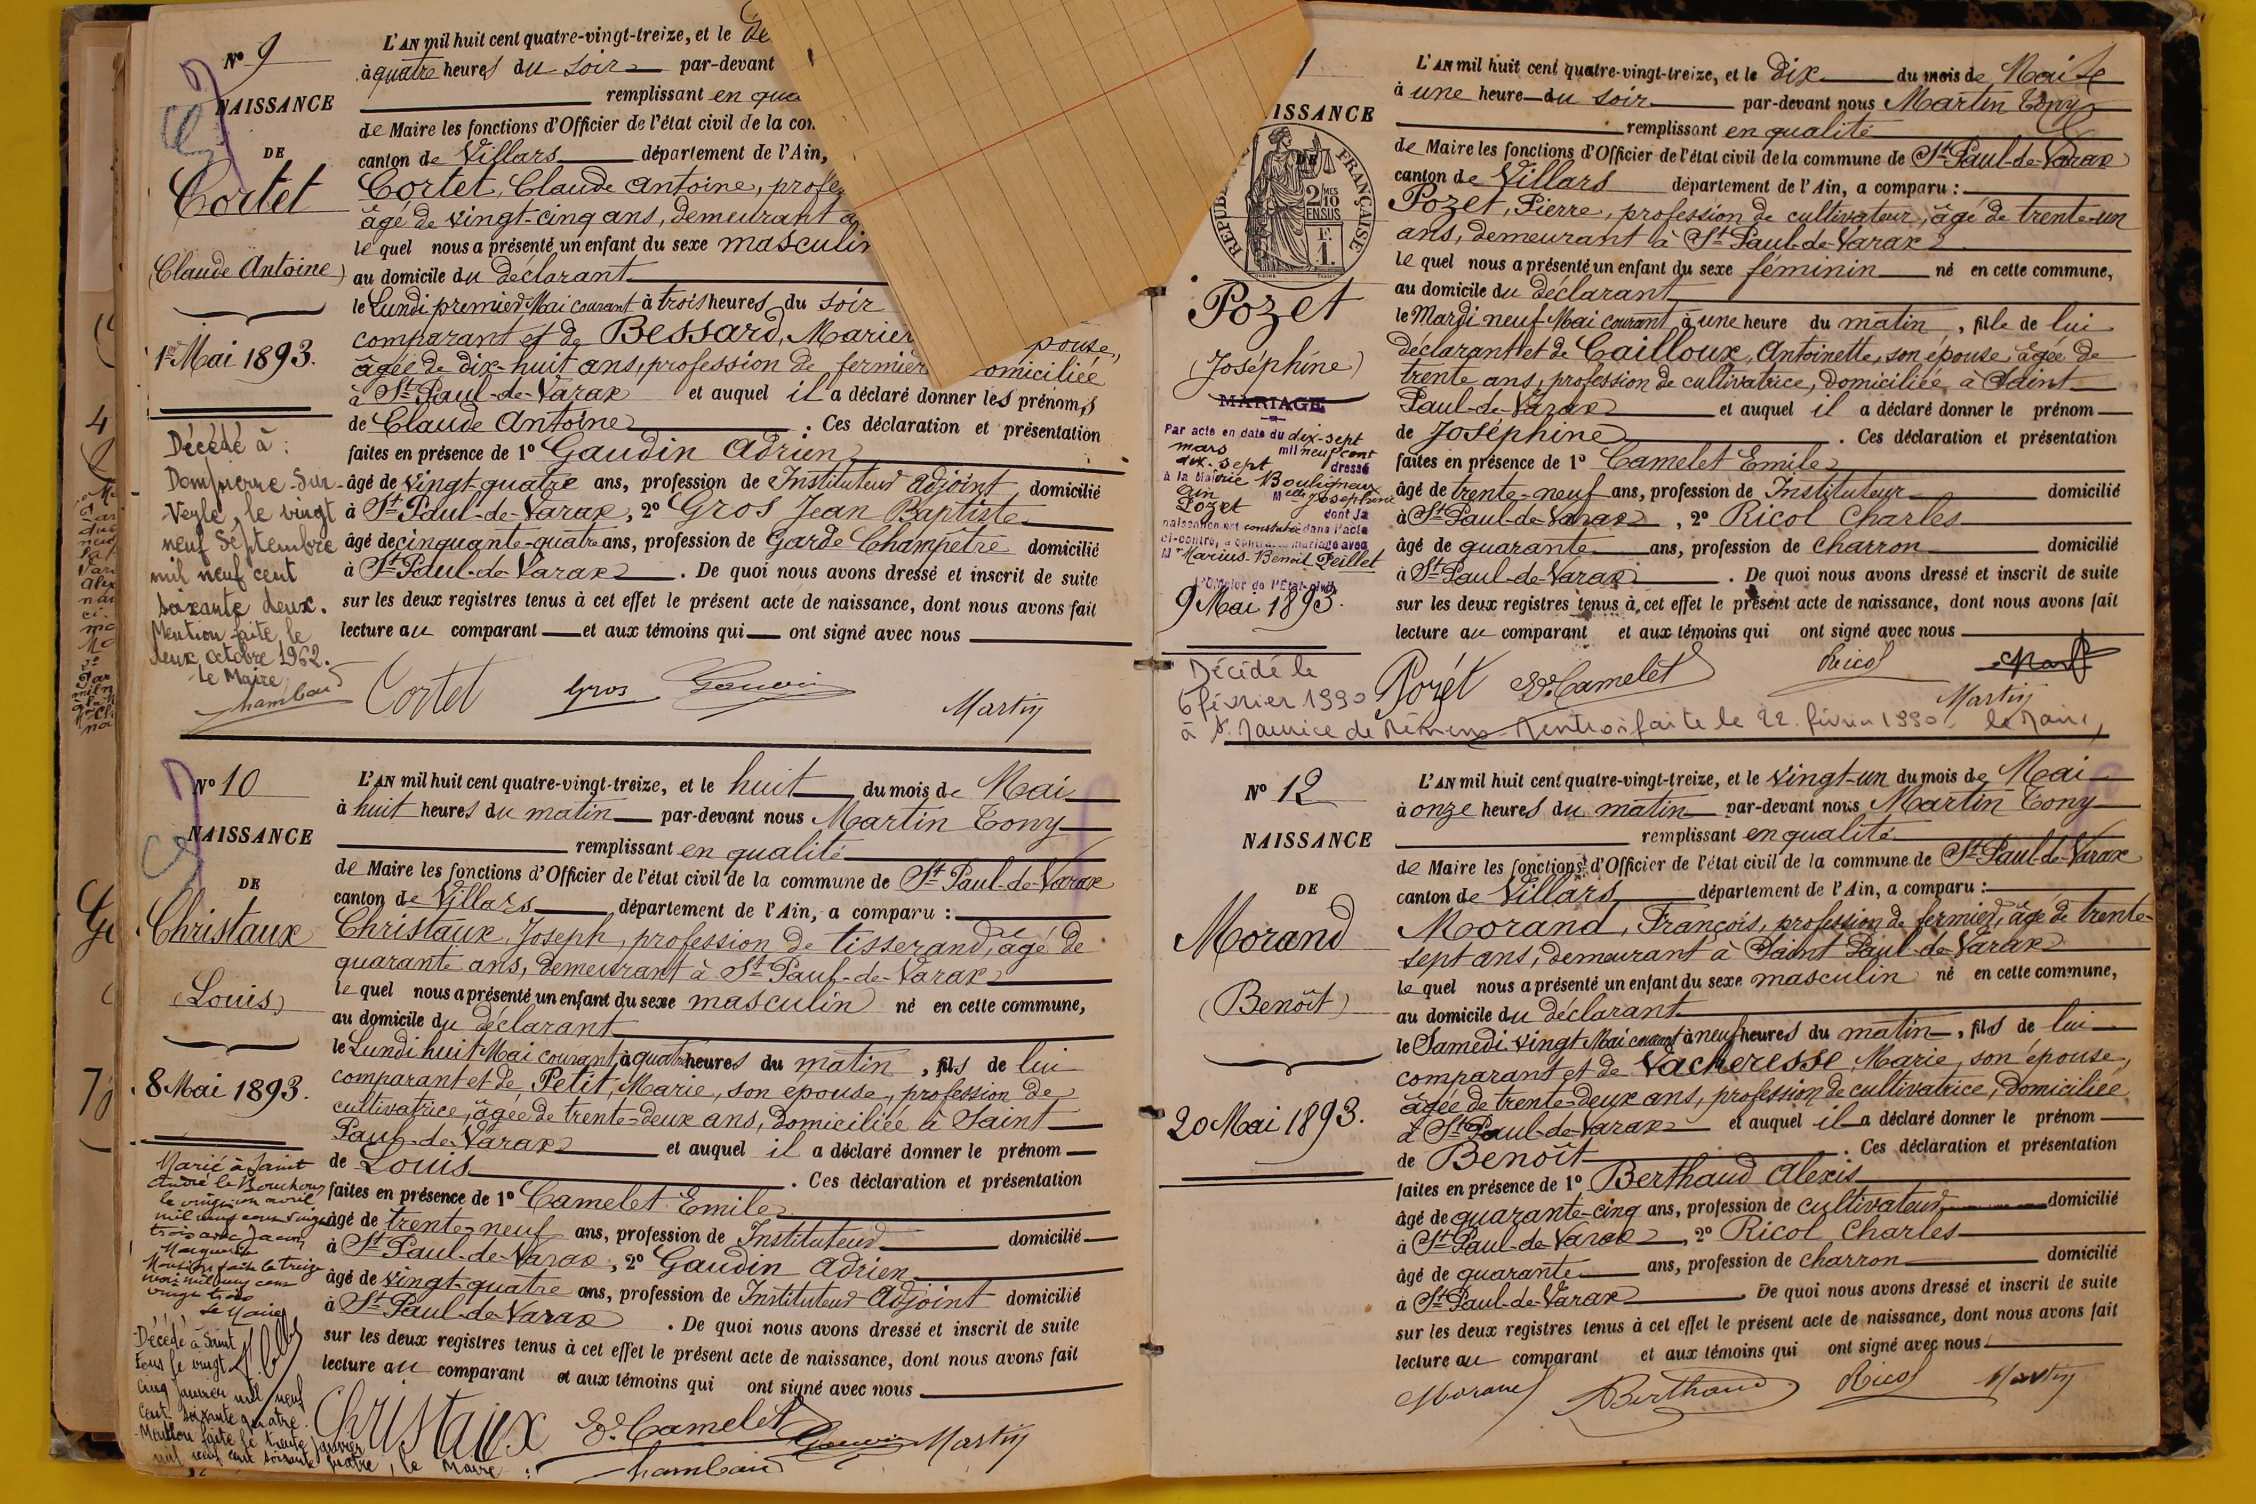 Nº 9
NAISSANCE
DE
Cortet
(Claude Antoine)
1er Mai 1893.
Décédé à :
Dompierre-sur-
Veyle, le vingt
neuf Septembre
mil neuf cent
soixante deux.
Mention faite le
deux octobre 1962.
Le Maire
Chambaud
L'AN mil huit cent quatre-vingt-treize, et le
à quatre heures du soir par-devant
remplissant en qua
de Maire les fonctions d'Officier de l'état civil de la com
canton de Villars département de l'Ain,
Cortet, Claude Antoine, profe
âgé de vingt-cinq ans, demeurant à
lequel nous a présenté un enfant du sexe masculin
au domicile du déclarant
le Lundi premier Mai courant à trois heures du soir
comparant et de Bessard, Marie épouse,
âgée de dix-huit ans, profession de fermière domiciliée
à St Paul-de-Varax et auquel il a déclaré donner les prénoms
de Claude Antoine . Ces déclaration et présentation
faites en présence de 1º Gaudin Adrien
âgé de vingt-quatre ans, profession de Instituteur adjoint domicilié
à St Paul-de-Varax, 2º Gros Jean Baptiste
âgé de cinquante-quatre ans, profession de Garde Champêtre domicilié
à St Paul-de-Varax . De quoi nous avons dressé et inscrit de suite
sur les deux registres tenus à cet effet le présent acte de naissance, dont nous avons fait
lecture au comparant et aux témoins qui ont signé avec nous
Cortet Gros Gaudin Martin
Nº 10
NAISSANCE
DE
Christaux
(Louis)
8 Mai 1893.
Marié à Saint
André le Bouchoux
le vingt un avril
mil neuf cent vingt
trois avec Jacon
Marguerite
Mention faite le treize
mai mil neuf cent
vingt trois
Le Maire
Décédé à Saint
le vingt
cinq Janvier mil neuf
cent soixante quatre.
Mention faite le trente janvier
mil neuf cent soixante quatre, le Maire :
L'AN mil huit cent quatre-vingt-treize, et le huit du mois de Mai
à huit heures du matin par-devant nous Martin Tony
remplissant en qualité
de Maire les fonctions d'Officier de l'état civil de la commune de St Paul-de-Varax
canton de Villars département de l'Ain, a comparu :
Christaux, Joseph, profession de tisserand, âgé de
quarante ans, demeurant à St Paul-de-Varax
lequel nous a présenté un enfant du sexe masculin né en cette commune,
au domicile du déclarant
le Lundi huit Mai courant à quatre heures du matin, fils de lui
comparant et de Petit, Marie, son épouse, profession de
cultivatrice, âgée de trente-deux ans, domiciliée à Saint
Paul-de-Varax et auquel il a déclaré donner le prénom
de Louis . Ces déclaration et présentation
faites en présence de 1º Camelet Emile
âgé de trente-neuf ans, profession de Instituteur domicilié
à St Paul-de-Varax, 2º Gaudin Adrien
âgé de vingt-quatre ans, profession de Instituteur Adjoint domicilié
à St Paul-de-Varax . De quoi nous avons dressé et inscrit de suite
sur les deux registres tenus à cet effet le présent acte de naissance, dont nous avons fait
lecture au comparant et aux témoins qui ont signé avec nous
Christaux Camelet Gaudin Martin
Chambaud
1
ISSANCE
RÉPUB FRANÇAISE
2 MES
10
EN SUS
F.
1.
Pozet
(Joséphine)
MARIAGE
Par acte en date du dix-sept
mars mil neuf cent
dix-sept dressé
à la Mairie Bouligneux
Ain Melle Josephine
Pozet dont la
naissance est constatée dans l'acte
ci-contre, a contracté mariage avec
Mr Marius-Benoit Peillet
L'Officier de l'Etat-civil,
9 Mai 1893.
Décédé le
6 février 1990
à St Maurice de Rémens Mention faite le 22 février 1990 le Maire,
L'AN mil huit cent quatre-vingt-treize, et le dix du mois de Mai
à une heure du soir par-devant nous Martin Tony
remplissant en qualité
de Maire les fonctions d'Officier de l'état civil de la commune de St Paul-de-Varax
canton de Villars département de l'Ain, a comparu :
Pozet, Pierre, profession de cultivateur, âgé de trente-un
ans, demeurant à St Paul-de-Varax
lequel nous a présenté un enfant du sexe féminin né en cette commune,
au domicile du déclarant
le Mardi neuf Mai courant à une heure du matin, fille de lui
déclarant et de Cailloux, Antoinette, son épouse, âgée de
trente ans, profession de cultivatrice, domiciliée à Saint
Paul-de-Varax et auquel il a déclaré donner le prénom
de Joséphine . Ces déclaration et présentation
faites en présence de 1º Camelet Emile
âgé de trente-neuf ans, profession de Instituteur domicilié
à St Paul-de-Varax, 2º Ricol Charles
âgé de quarante ans, profession de charron domicilié
à St Paul-de-Varax . De quoi nous avons dressé et inscrit de suite
sur les deux registres tenus à cet effet le présent acte de naissance, dont nous avons fait
lecture au comparant et aux témoins qui ont signé avec nous
Pozet Camelet Ricol
Martin
Nº 12
NAISSANCE
DE
Morand
(Benoît)
20 Mai 1893.
L'AN mil huit cent quatre-vingt-treize, et le vingt-un du mois de Mai
à onze heures du matin par-devant nous Martin Tony
remplissant en qualité
de Maire les fonctions d'Officier de l'état civil de la commune de St Paul-de-Varax
canton de Villars département de l'Ain, a comparu :
Morand, François, profession de fermier, âgé de trente-
sept ans, demeurant à Saint Paul-de-Varax
lequel nous a présenté un enfant du sexe masculin né en cette commune,
au domicile du déclarant
le Samedi vingt Mai courant à neuf heures du matin, fils de lui
comparant et de Vacheresse, Marie, son épouse,
âgée de trente-deux ans, profession de cultivatrice, domiciliée
à St Paul-de-Varax et auquel il a déclaré donner le prénom
de Benoît . Ces déclaration et présentation
faites en présence de 1º Berthaud Alexis
âgé de quarante-cinq ans, profession de cultivateur domicilié
à St Paul-de-Varax, 2º Ricol Charles
âgé de quarante ans, profession de charron domicilié
à St Paul-de-Varax . De quoi nous avons dressé et inscrit de suite
sur les deux registres tenus à cet effet le présent acte de naissance, dont nous avons fait
lecture au comparant et aux témoins qui ont signé avec nous
Morand Berthaud Ricol Martin